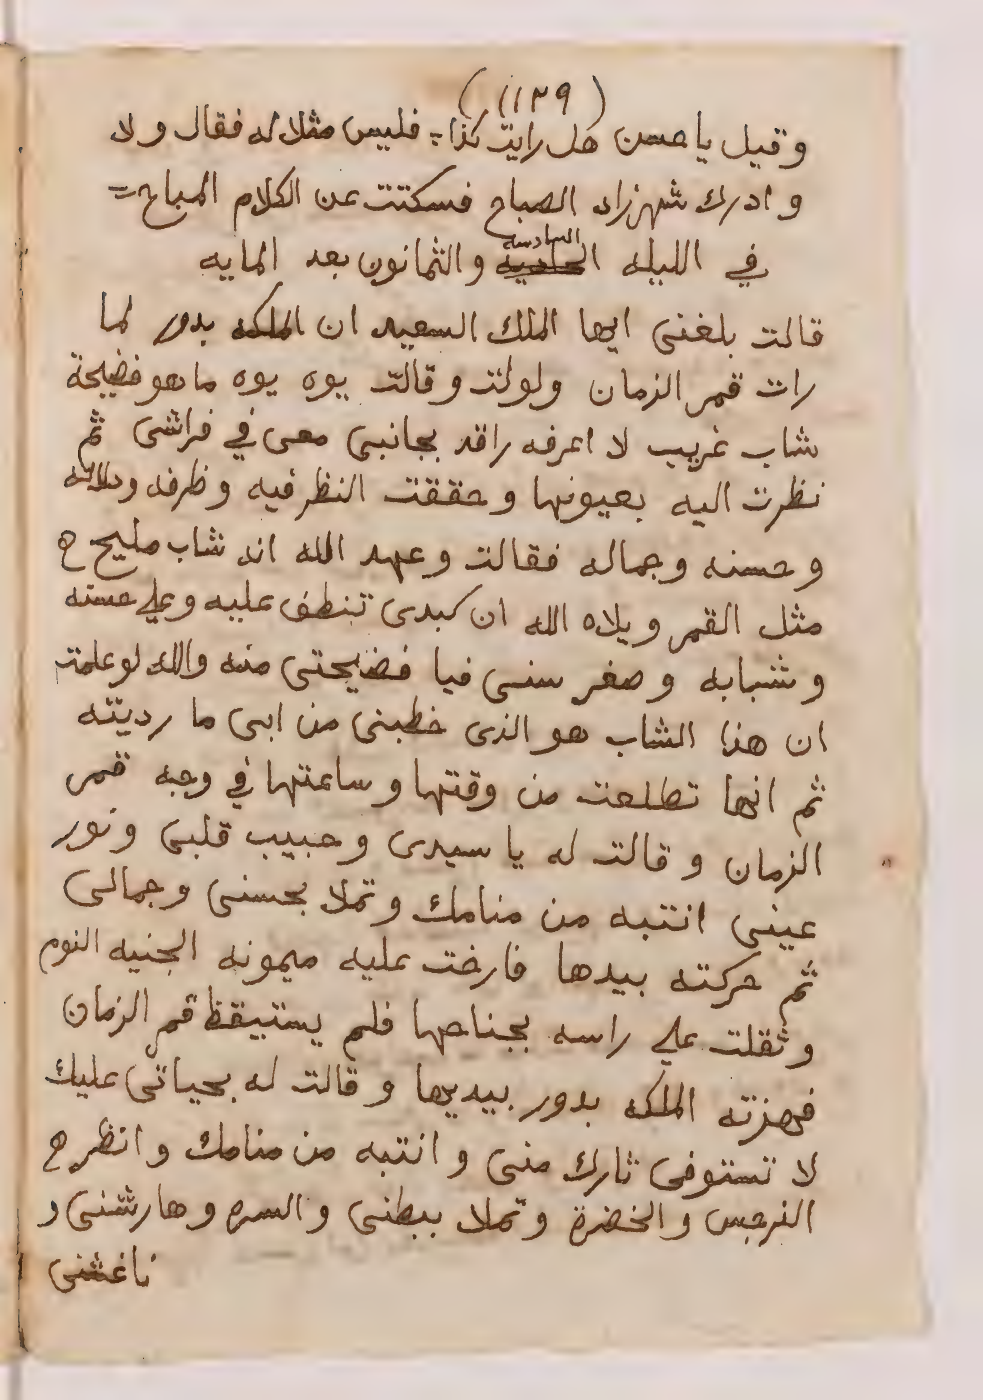 (١١٣٩)
وقيل يا حسن هل رايت كذا، فليس مثلا له فقال ولا
وادرك شهرزاد الصباح فسكتت عن الكلام المباح
في الليله السادسه والثمانون بعد المايه
قالت بلغنى ايها الملك السعيد ان الملكه بدور لما
رات قمر الزمان ولولت وقالت يوه يوه ما هو فضيحة
شاب غريب لا اعرفه راقد بجانبى معى في فراشى ثم
نظرت اليه بعيونها وحققت النظر فيه وظرفه ودلاله
وحسنه وجماله فقالت وعهد الله انه شاب مليح
مثل القمر ويلاه الله ان كبدى تنطف عليه وعلي حسنه
وشبابه وصغر سنى فيا فضيحتى منه والله لو علمت
ان هذا الشاب هو الذى خطبنى من ابى ما رديته
ثم انها تطلعت من وقتها وساعتها في وجه قمر
الزمان وقالت له يا سيدى وحبيب قلبى ونور
عينى انتبه من منامك وتملا بحسنى وجمالى
ثم حركته بيدها فارخت عليه ميمونه الجنيه النوم
وثقلت علي راسه بجناحها فلم يستيقظ قمر الزمان
فهزته الملكه بدور بيديها وقالت له بحياتى عليك
لا تستوفى تارك منى وانتبه من منامك وانظر
النرجس والخضرة وتملا ببطنى والسره وهارشنى و
ناغشنى